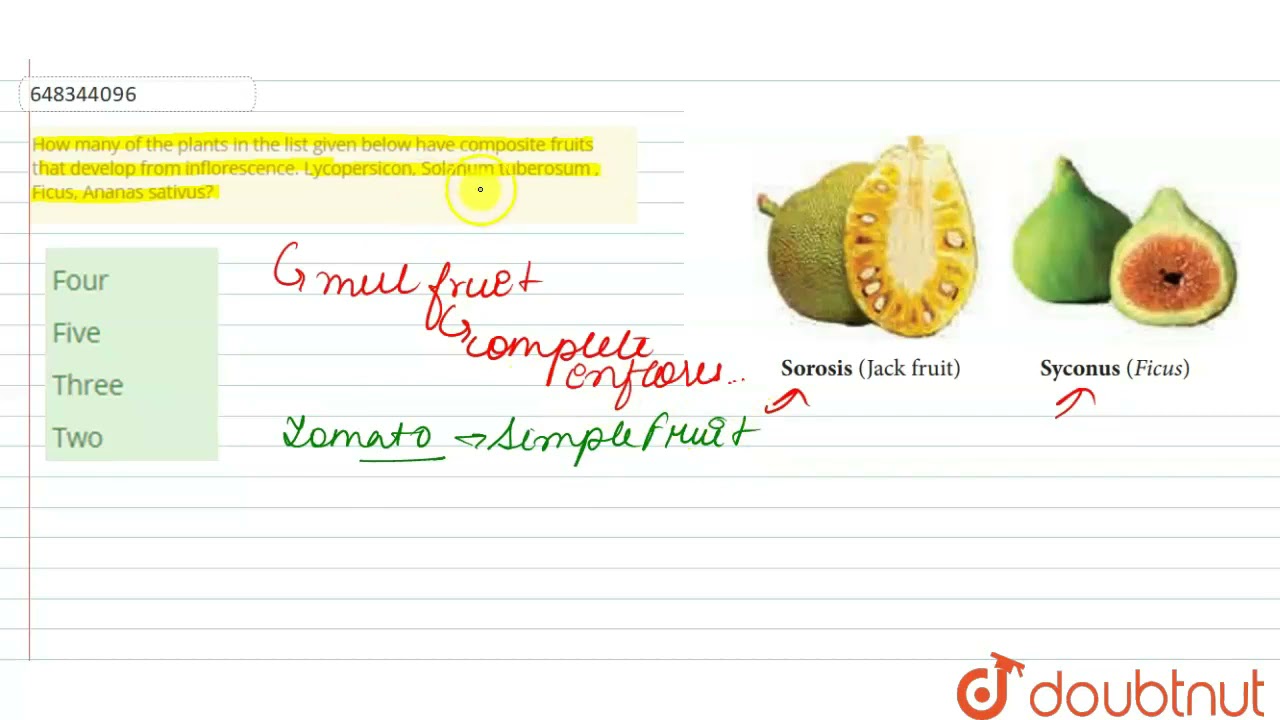 648344096
How many of the plants in the list given below have composite fruits
that develop from inflorescence. Lycopersicon, Solanum tuberosum ,
Ficus, Ananas sativus?
Four
Five
Three
Two
mul fruit
complete
inflores...
Tomato → Simple fruit
Sorosis (Jack fruit)
Syconus (Ficus)
doubtnut